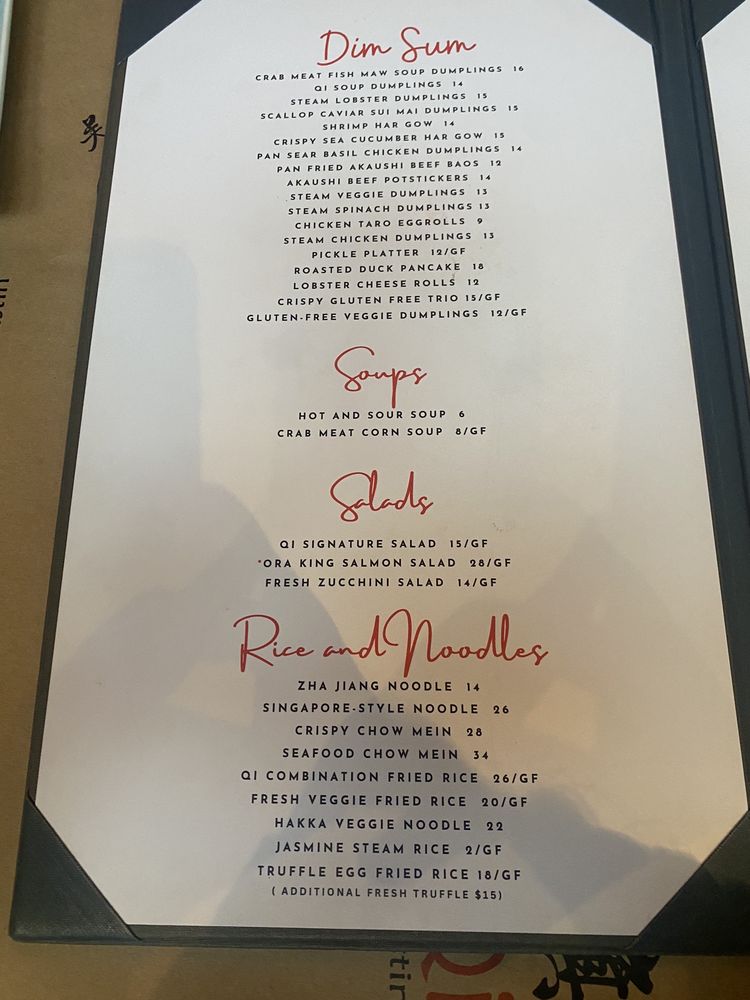 Dim Sum
CRAB MEAT FISH MAW SOUP DUMPLINGS 16
QI SOUP DUMPLINGS 14
STEAM LOBSTER DUMPLINGS 15
SCALLOP CAVIAR SUI MAI DUMPLINGS 15
SHRIMP HAR GOW 14
CRISPY SEA CUCUMBER HAR GOW 15
PAN SEAR BASIL CHICKEN DUMPLINGS 14
PAN FRIED AKAUSHI BEEF BAOS 12
AKAUSHI BEEF POTSTICKERS 14
STEAM VEGGIE DUMPLINGS 13
STEAM SPINACH DUMPLINGS 13
CHICKEN TARO EGGROLLS 9
STEAM CHICKEN DUMPLINGS 13
PICKLE PLATTER 12/GF
ROASTED DUCK PANCAKE 18
LOBSTER CHEESE ROLLS 12
CRISPY GLUTEN FREE TRIO 15/GF
GLUTEN-FREE VEGGIE DUMPLINGS 12/GF
Soups
HOT AND SOUR SOUP 6
CRAB MEAT CORN SOUP 8/GF
Salads
QI SIGNATURE SALAD 15/GF
*ORA KING SALMON SALAD 28/GF
FRESH ZUCCHINI SALAD 14/GF
Rice and Noodles
ZHA JIANG NOODLE 14
SINGAPORE-STYLE NOODLE 26
CRISPY CHOW MEIN 28
SEAFOOD CHOW MEIN 34
QI COMBINATION FRIED RICE 26/GF
FRESH VEGGIE FRIED RICE 20/GF
HAKKA VEGGIE NOODLE 22
JASMINE STEAM RICE 2/GF
TRUFFLE EGG FRIED RICE 18/GF
( ADDITIONAL FRESH TRUFFLE $15)